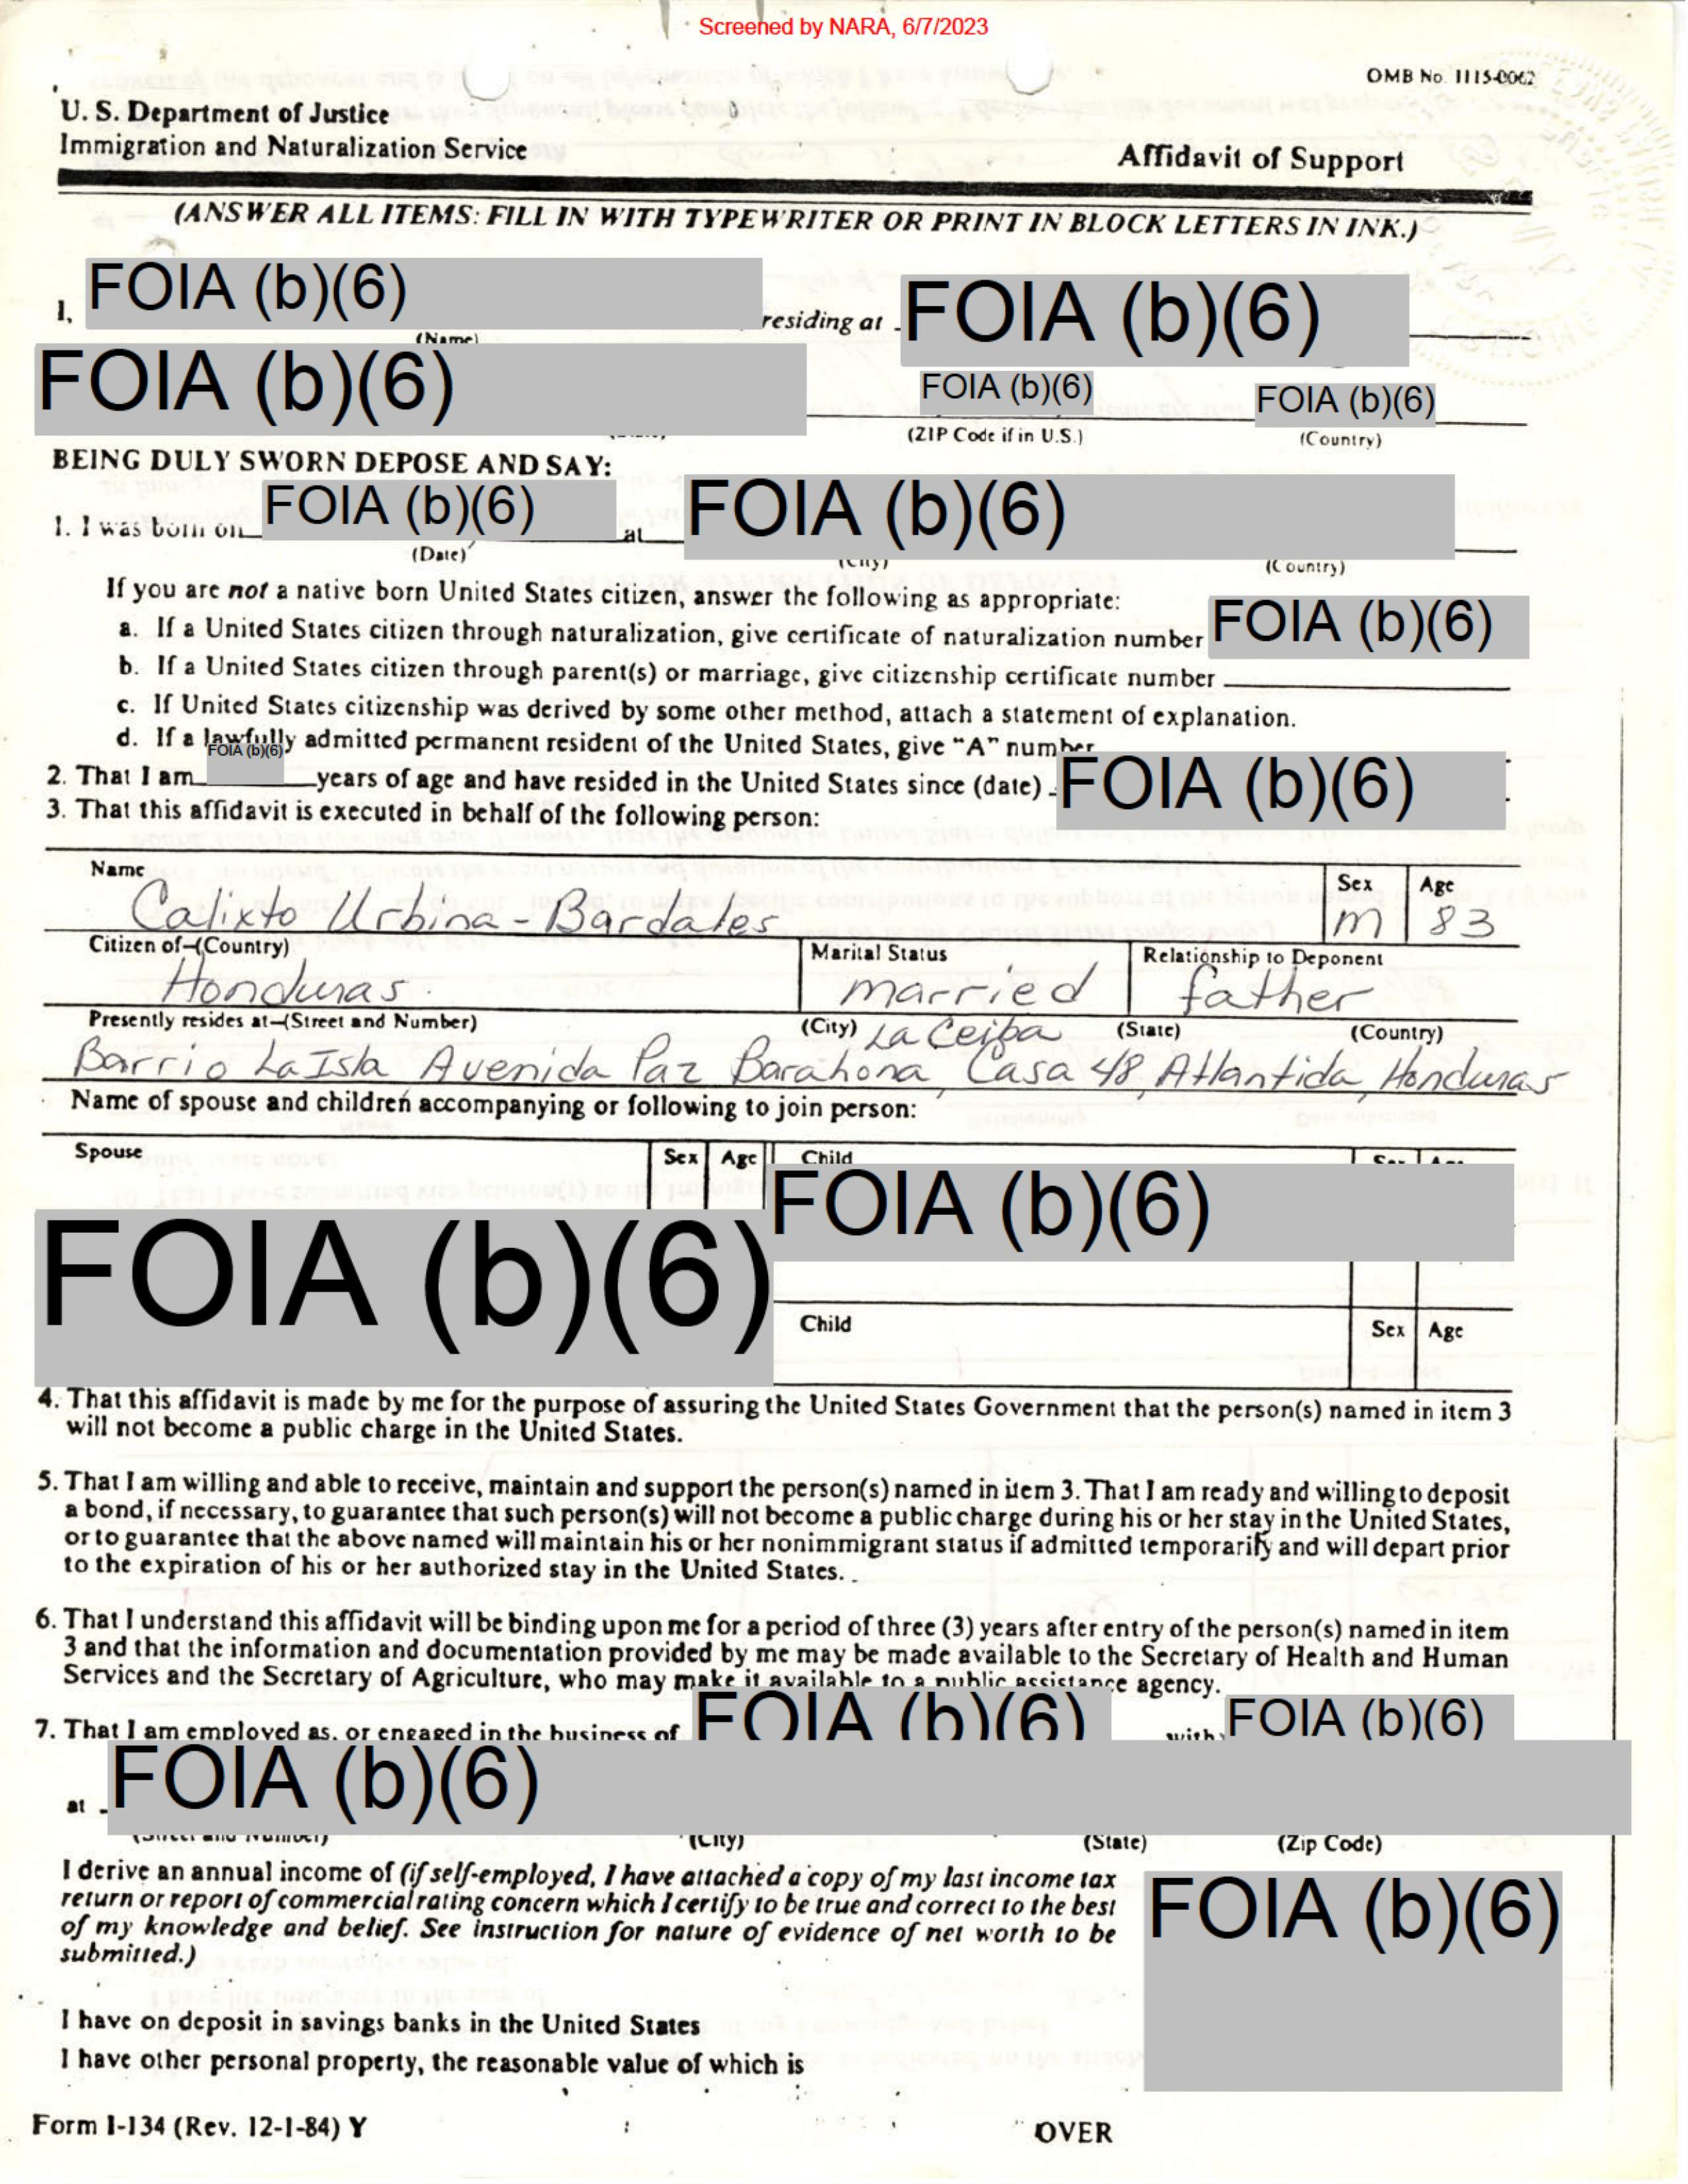 Screened by NARA, 6/7/2023
OMB No. 1115-0062
U. S. Department of Justice
Immigration and Naturalization Service
Affidavit of Support
(ANSWER ALL ITEMS: FILL IN WITH TYPEWRITER OR PRINT IN BLOCK LETTERS IN INK.)
I, FOIA (b)(6) residing at FOIA (b)(6)
(Name)
FOIA (b)(6) FOIA (b)(6) FOIA (b)(6)
(ZIP Code if in U.S.) (Country)
BEING DULY SWORN DEPOSE AND SAY:
1. I was born on FOIA (b)(6) at FOIA (b)(6)
(Date) (City) (Country)
If you are not a native born United States citizen, answer the following as appropriate:
a. If a United States citizen through naturalization, give certificate of naturalization number FOIA (b)(6)
b. If a United States citizen through parent(s) or marriage, give citizenship certificate number
c. If United States citizenship was derived by some other method, attach a statement of explanation.
d. If a lawfully admitted permanent resident of the United States, give "A" number
2. That I am FOIA (b)(6) years of age and have resided in the United States since (date) FOIA (b)(6)
3. That this affidavit is executed in behalf of the following person:
Name Sex Age
Calixto Urbina-Bardales M 83
Citizen of-(Country) Marital Status Relationship to Deponent
Honduras married father
Presently resides at-(Street and Number) (City) La Ceiba (State) (Country)
Barrio La Isla Avenida Paz Barahona, Casa 48, Atlantida, Honduras
Name of spouse and children accompanying or following to join person:
Spouse Sex Age Child Sex Age
FOIA (b)(6) FOIA (b)(6)
Child Sex Age
4. That this affidavit is made by me for the purpose of assuring the United States Government that the person(s) named in item 3
will not become a public charge in the United States.
5. That I am willing and able to receive, maintain and support the person(s) named in item 3. That I am ready and willing to deposit
a bond, if necessary, to guarantee that such person(s) will not become a public charge during his or her stay in the United States,
or to guarantee that the above named will maintain his or her nonimmigrant status if admitted temporarily and will depart prior
to the expiration of his or her authorized stay in the United States.
6. That I understand this affidavit will be binding upon me for a period of three (3) years after entry of the person(s) named in item
3 and that the information and documentation provided by me may be made available to the Secretary of Health and Human
Services and the Secretary of Agriculture, who may make it available to a public assistance agency.
7. That I am employed as, or engaged in the business of FOIA (b)(6) with FOIA (b)(6)
at FOIA (b)(6)
(Street and Number) (City) (State) (Zip Code)
I derive an annual income of (if self-employed, I have attached a copy of my last income tax
return or report of commercial rating concern which I certify to be true and correct to the best
of my knowledge and belief. See instruction for nature of evidence of net worth to be
submitted.)
FOIA (b)(6)
I have on deposit in savings banks in the United States
I have other personal property, the reasonable value of which is
Form I-134 (Rev. 12-1-84) Y OVER